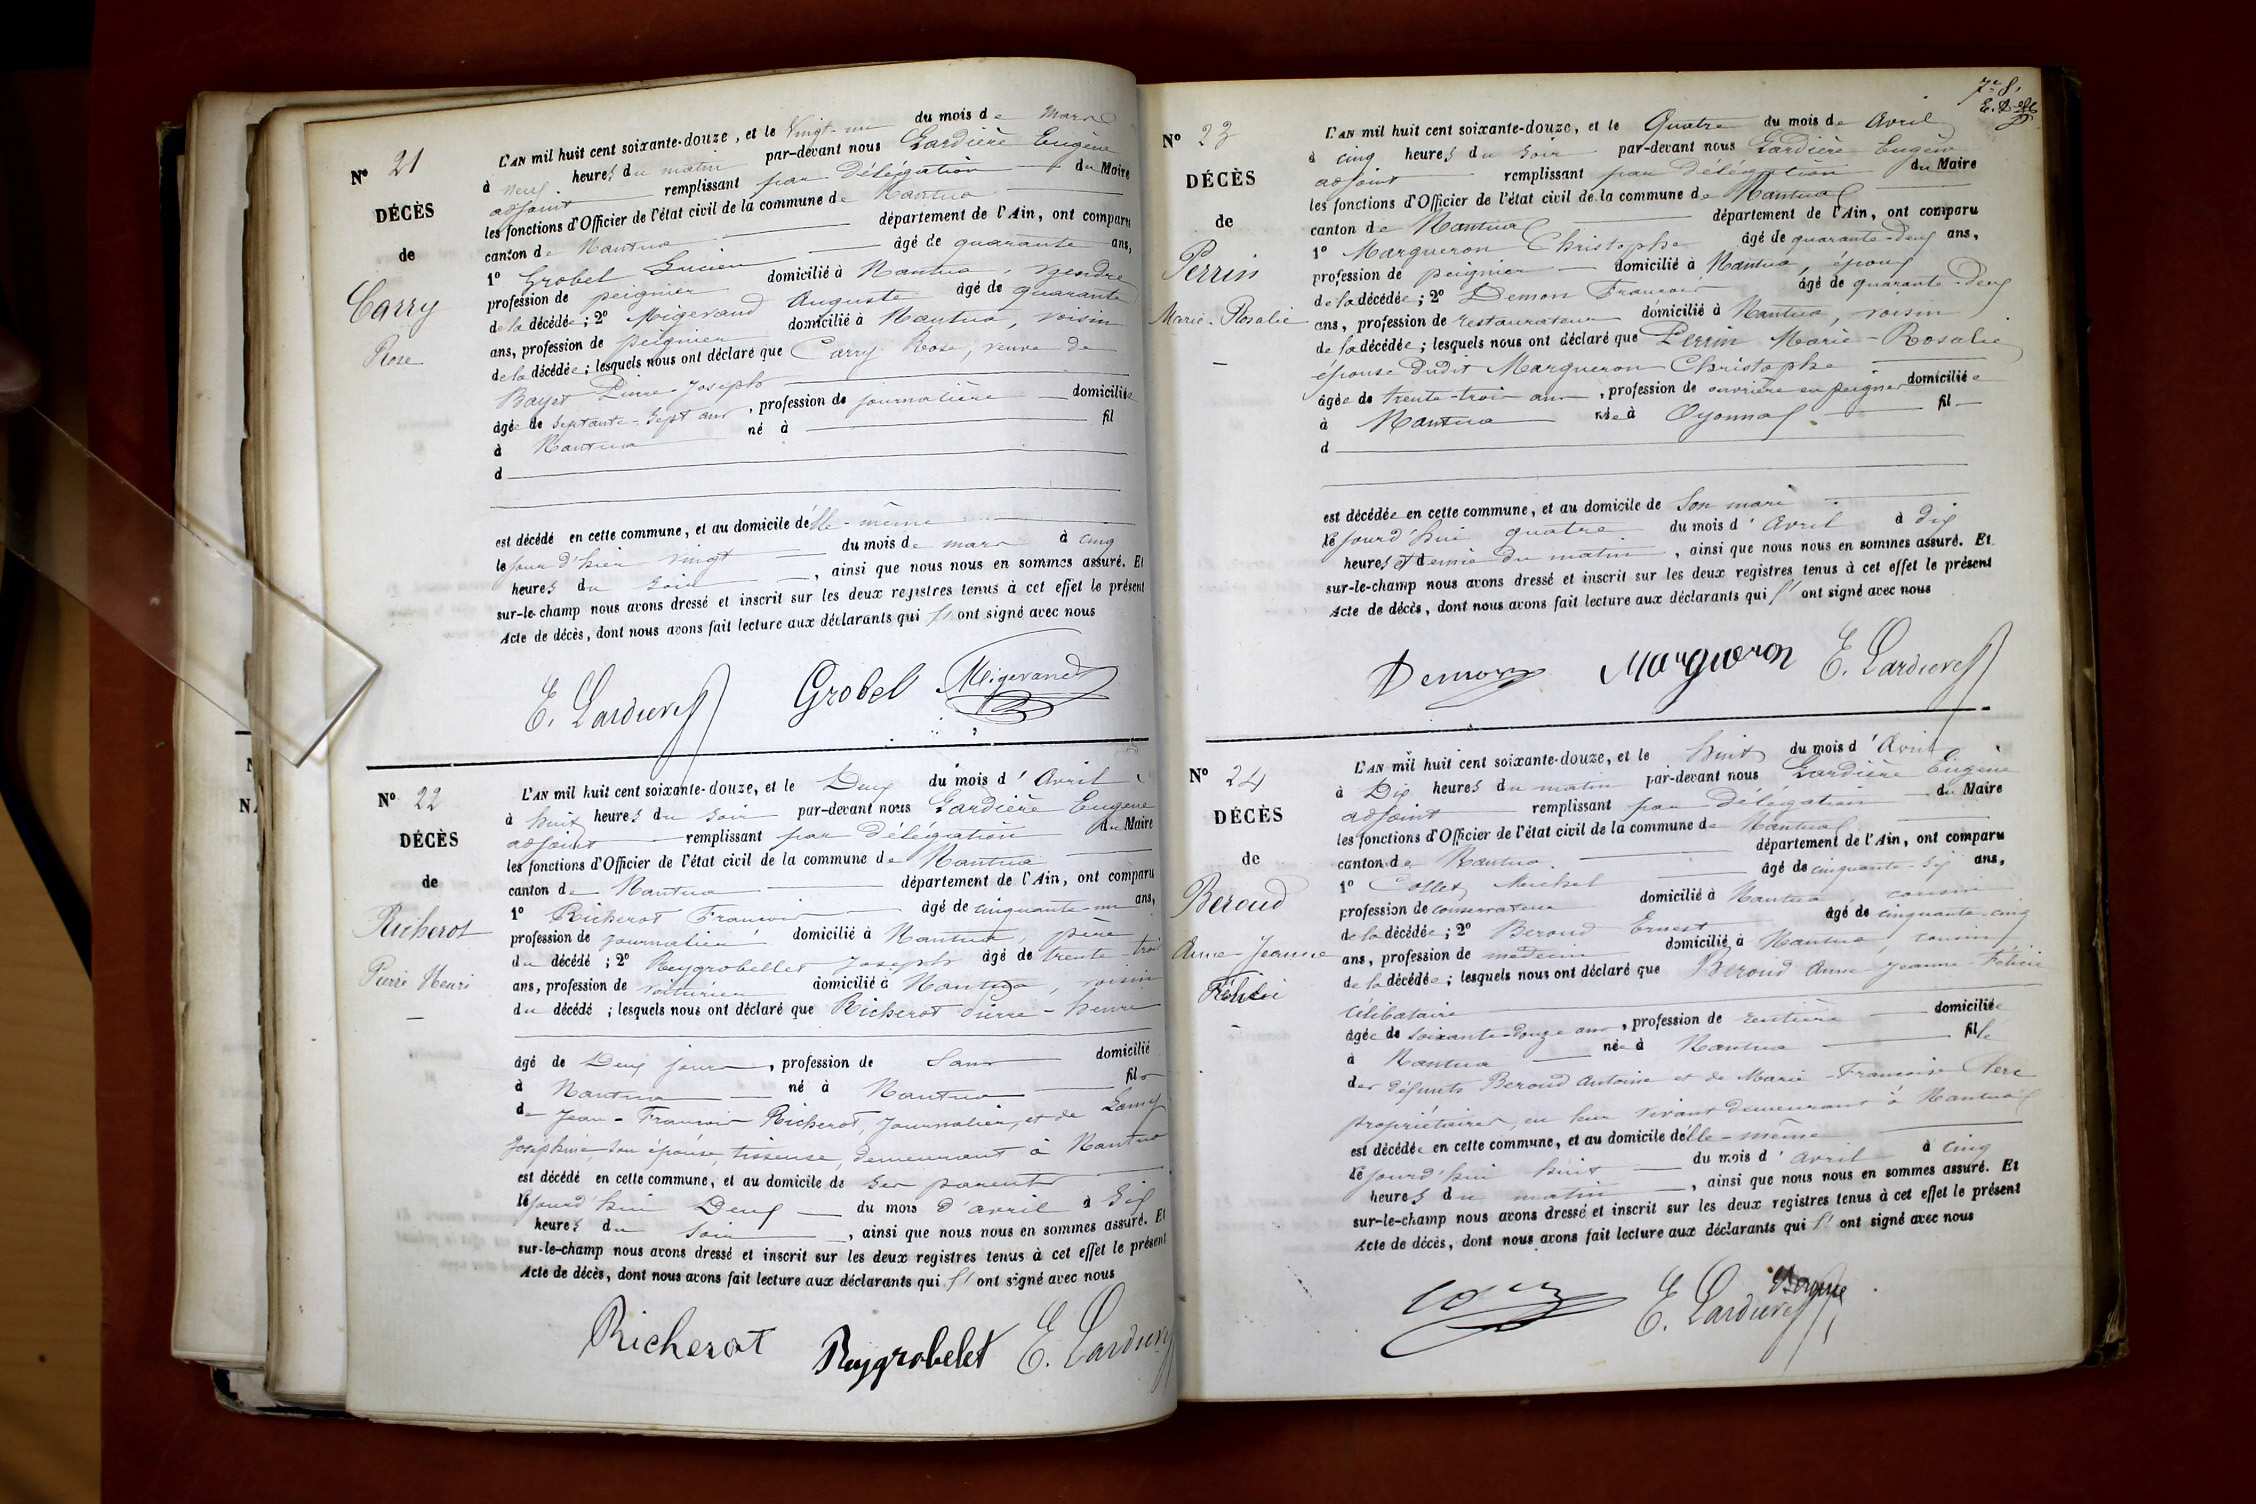 N° 21
DÉCÈS
de
Carry
Rose
L'AN mil huit cent soixante-douze, et le Vingt-un du mois de Mars
à neuf heures du matin par-devant nous Lardière Eugène
adjoint remplissant par Délégation du Maire
les fonctions d'Officier de l'état civil de la commune de Nantua
canton de Nantua département de l'Ain, ont comparu
1° Grobel Lucien âgé de quarante ans,
profession de peignier domicilié à Nantua, gendre
de la décédée; 2° Migerand Auguste âgé de quarante
ans, profession de peignier domicilié à Nantua, voisin
de la décédée; lesquels nous ont déclaré que Carry Rose, veuve de
Bayet Pierre-Joseph
âgée de septante-sept ans, profession de journalière domiciliée
à Nantua né à fil
d
est décédé en cette commune, et au domicile d'elle-même
le jour d'hier vingt du mois de mars à cinq
heures du soir, ainsi que nous nous en sommes assuré. Et
sur-le-champ nous avons dressé et inscrit sur les deux registres tenus à cet effet le présent
Acte de décès, dont nous avons fait lecture aux déclarants qui l' ont signé avec nous
E. Lardière Grobel Migerand
N° 22
DÉCÈS
de
Richerot
Pierre Henri
L'AN mil huit cent soixante-douze, et le Deux du mois d'Avril
à huit heures du soir par-devant nous Lardière Eugène
adjoint remplissant par Délégation du Maire
les fonctions d'Officier de l'état civil de la commune de Nantua
canton de Nantua département de l'Ain, ont comparu
1° Richerot François âgé de cinquante-un ans,
profession de journalier domicilié à Nantua, père
du décédé; 2° Reygrobellet Joseph âgé de trente trois
ans, profession de voiturier domicilié à Nantua, voisin
du décédé; lesquels nous ont déclaré que Richerot Pierre-henri
âgé de Deux jours, profession de Sans domicilié
à Nantua né à Nantua fils
de Jean-François Richerot, journalier, et de Lamy
Joséphine, son épouse, tisseuse, demeurant à Nantua
est décédé en cette commune, et au domicile de ses parents
le jourd'hui Deux du mois d'avril à Six
heures du soir, ainsi que nous nous en sommes assuré. Et
sur-le-champ nous avons dressé et inscrit sur les deux registres tenus à cet effet le présent
Acte de décès, dont nous avons fait lecture aux déclarants qui l' ont signé avec nous
Richerot Reygrobelet E. Lardière
7e f.
N° 23
DÉCÈS
de
Perrin
Marie-Rosalie
L'AN mil huit cent soixante-douze, et le Quatre du mois de Avril
à cinq heures du soir par-devant nous Lardière Eugène
adjoint remplissant par délégation du Maire
les fonctions d'Officier de l'état civil de la commune de Nantua
canton de Nantua département de l'Ain, ont comparu
1° Margueron Christophe âgé de quarante-deux ans,
profession de peignier domicilié à Nantua, époux
de la décédée; 2° Demon François âgé de quarante-deux
ans, profession de restaurateur domicilié à Nantua, voisin
de la décédée; lesquels nous ont déclaré que Perrin Marie-Rosalie
épouse dudit Margueron Christophe
âgée de trente-trois ans, profession de ouvrière en peignes domiciliée
à Nantua née à Oyonnax fil
d
est décédée en cette commune, et au domicile de son mari
le jourd'hui quatre du mois d'Avril à dix
heures et demie du matin, ainsi que nous nous en sommes assuré. Et
sur-le-champ nous avons dressé et inscrit sur les deux registres tenus à cet effet le présent
Acte de décès, dont nous avons fait lecture aux déclarants qui l' ont signé avec nous
Demon Margueron E. Lardière
N° 24
DÉCÈS
de
Beroud
Anne-Jeanne
Félicie
L'AN mil huit cent soixante-douze, et le huit du mois d'Avril
à Dix heures du matin par-devant nous Lardière Eugène
adjoint remplissant par Délégation du Maire
les fonctions d'Officier de l'état civil de la commune de Nantua
canton de Nantua département de l'Ain, ont comparu
1° Collet Michel âgé de cinquante-six ans,
profession de conservateur domicilié à Nantua, cousin
de la décédée; 2° Beroud Ernest âgé de cinquante-cinq
ans, profession de médecin domicilié à Nantua, cousin
de la décédée; lesquels nous ont déclaré que Beroud Anne Jeanne-Félicie
célibataire
âgée de soixante-douze ans, profession de rentière domiciliée
à Nantua née à Nantua fille
des défunts Beroud Antoine et de Marie-Françoise
propriétaires, en leur vivant demeurant à Nantua
est décédée en cette commune, et au domicile d'elle-même
le jourd'hui huit du mois d'avril à cinq
heures du matin, ainsi que nous nous en sommes assuré. Et
sur-le-champ nous avons dressé et inscrit sur les deux registres tenus à cet effet le présent
Acte de décès, dont nous avons fait lecture aux déclarants qui l' ont signé avec nous
E. Lardière